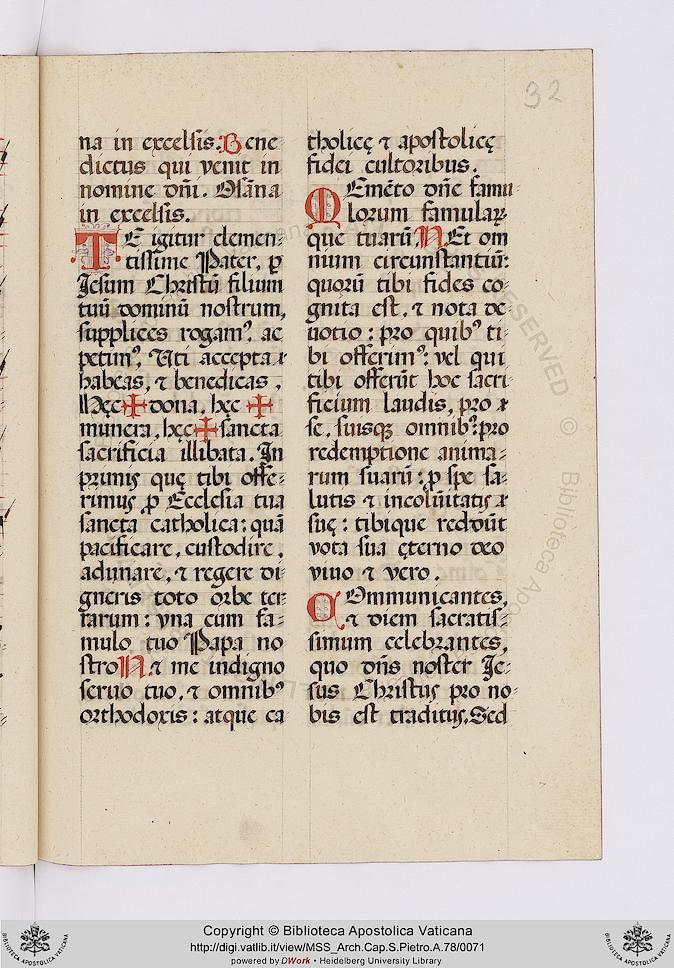 32
na in excelsis. Bene
dictus qui venit in
nomine dñi. Osãna
in excelsis.
TE igitur clemen-
tissime Pater, ꝑ
Jesum Christũ filium
tuũ dominũ nostrum,
supplices rogamꝰ, ac
petimꝰ, Uti accepta
habeas, ⁊ benedicas,
Hęc ✠ dona, hęc ✠
munera, hęc ✠ sancta
sacrificia illibata. In
primis quę tibi offe-
rimus ꝑ Ecclesia tua
sancta catholica: quã
pacificare, custodire,
adunare, ⁊ regere di
gneris toto orbe ter
rarum: vna cum fa-
mulo tuo Papa no
stro N. ⁊ me indigno
seruo tuo, ⁊ omnibꝰ
orthodoxis: atque ca
tholicę ⁊ apostolicę
fidei cultoribus.
MEmẽto dñe famu
lorum famularꝝ
que tuarũ, N. Et om
nium circunstantiũ:
quorũ tibi fides co-
gnita est, ⁊ nota de
uotio: pro quibꝰ ti-
bi offerimꝰ: vel qui
tibi offerũt hoc sacri
ficium laudis, pro
se, suisqꝫ omnibꝰ: pro
redemptione anima-
rum suarũ: ꝑ spe sa-
lutis ⁊ incolũitatis
suę: tibique reddũt
vota sua ęterno deo
viuo ⁊ vero.
COmmunicantes,
⁊ diem sacratis-
simum celebrantes,
quo dñs noster Je-
sus Christus pro no-
bis est traditus. Sed
Copyright © Biblioteca Apostolica Vaticana
http://digi.vatlib.it/view/MSS_Arch.Cap.S.Pietro.A.78/0071
powered by DWork • Heidelberg University Library
BIBLIOTECA APOSTOLICA VATICANA
BIBLIOTECA APOSTOLICA VATICANA